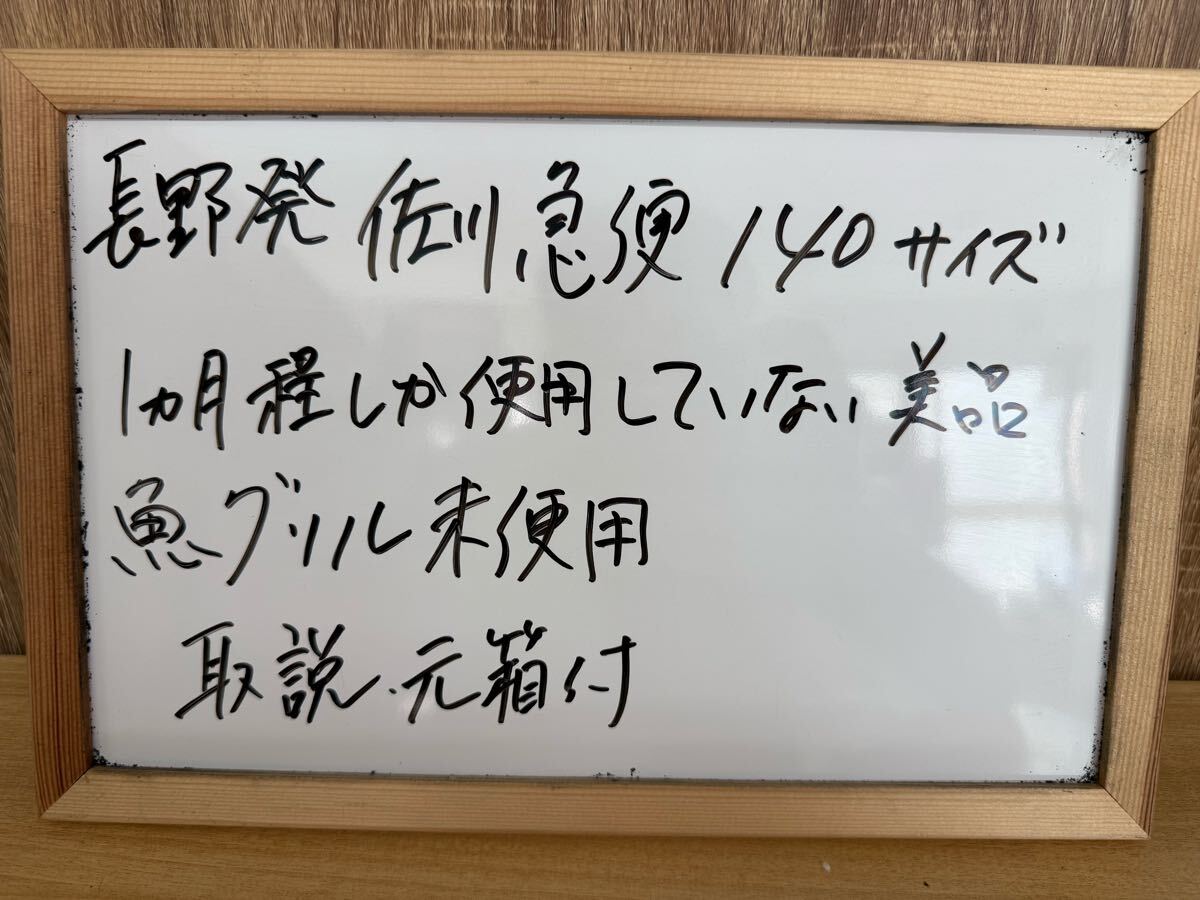 長野発 佐川急便 140サイズ
1ヵ月程しか使用していない 美品
魚グリル未使用
取説・元箱付